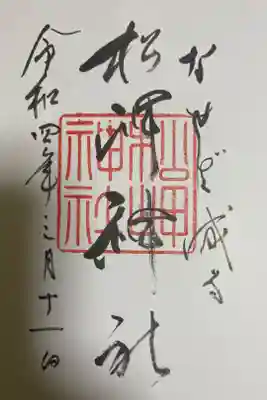 なせば成る
松岬神社
松岬神社
令和四年三月十一日